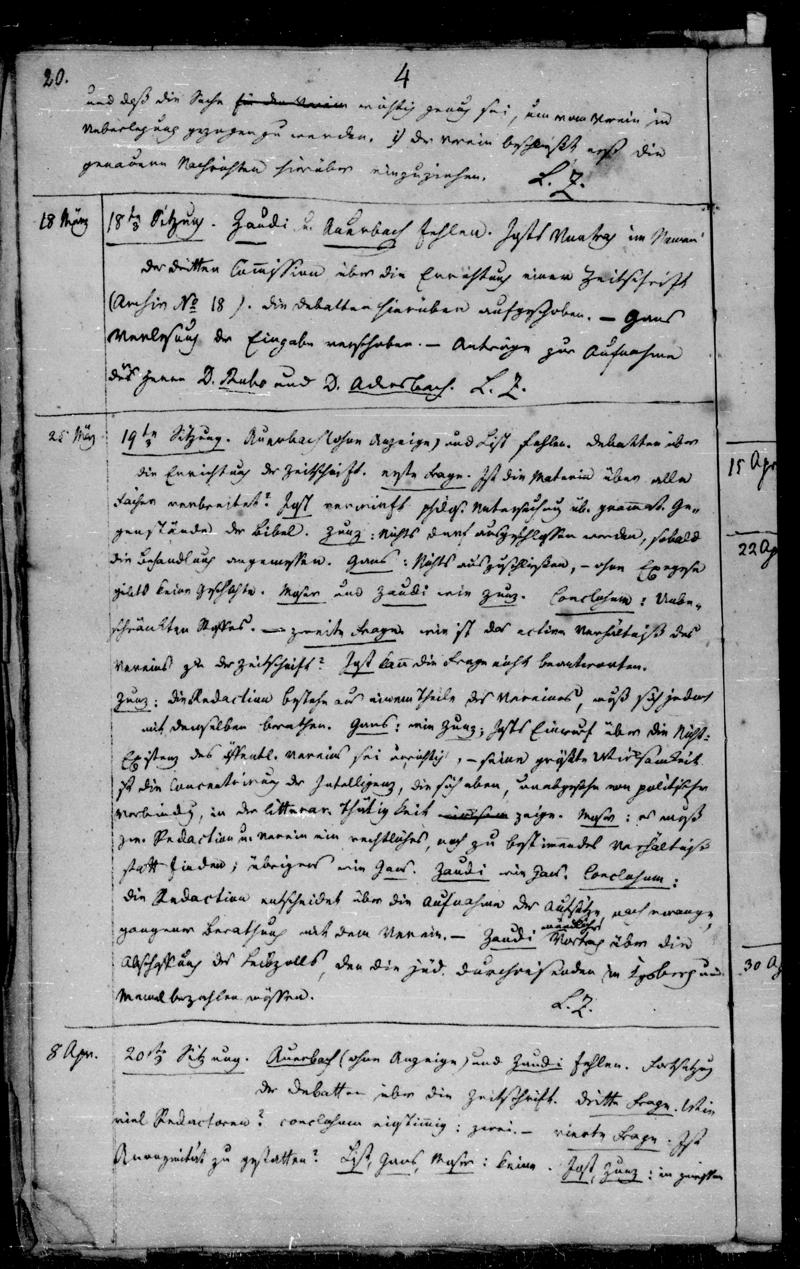 20.
4
und daß die Sache für den Verein wichtig genug sei, um vom Verein in
Ueberlegung gezogen zu werden. Der Verein beschließt erst die
genauern Nachrichten hierüber einzuziehen. L. Z.
18 März
18te Sitzung. Zaudi u. Auerbach fehlen. Josts Vortrag im Namen
der dritten Commission über die Errichtung einer Zeitschrift
(Archiv No 18). Die Debatten hierüber aufgeschoben. — Gans
Verlesung der Eingabe verschoben. — Anträge zur Aufnahme
des Herrn D. Rubo und D. Adersbach. L. Z.
25 März
19te Sitzung. Auerbach (ohne Anzeige) und List fehlen. Debatten über
die Errichtung der Zeitschrift. erste Frage. Ist die Materie über alle
Fächer verbreitet? Jost verwirft philos. Untersuchung üb. grammat. Ge-
genstände der Bibel. Zunz: Nichts darf ausgeschlossen werden, sobald
die Behandlung angemessen. Gans: Nichts auszuschließen, — ohne Exegese
gibts keine Geschichte. Moser und Zaudi wie Zunz. Conclusum: Unbe-
schränkten Stoffes. — zweite Frage. wie ist das active Verhältniß des
Vereins zu der Zeitschrift? Jost kann die Frage nicht beantworten.
Zunz: die Redaction bestehe aus einem Theile des Vereines, muß sich jedoch
mit demselben berathen. Gans: wie Zunz; Josts Einwurf über die Nicht-
Existenz des öffentl. Vereins sei unrichtig, — seine größte Wirksamkeit
ist die Concentrirung der Intelligenz, die sich eben, unabgesehn von politischer
Verbindung, in der litterar. Thätigkeit zeige. Moser: es muß
zw. Redaction u. Verein ein rechtliches, noch zu bestimmendes Verhältniß
statt finden; übrigens wie Gans. Zaudi wie Gans. Conclusum:
die Redaction entscheidet über die Aufnahme der Aufsätze, nach vorange-
gangener Berathung mit dem Verein. — Zaudi mündlicher Vortrag über die
Abschaffung des Leibzolls, den die jüd. Durchreisenden in Kgsberg und
Memel bezahlen müssen. L. Z.
8 Apr.
20ste Sitzung. Auerbach (ohne Anzeige) und Zaudi fehlen. Fortsetzung
der Debatten über die Zeitschrift. dritte Frage. Wie
viel Redactoren? conclusum einstimmig: zwei. — vierte Frage. Ist
Anonymität zu gestatten? List, Gans, Moser: keine. Jost, Zunz: in gewissen
15 Apr
22 Ap
30 Ap